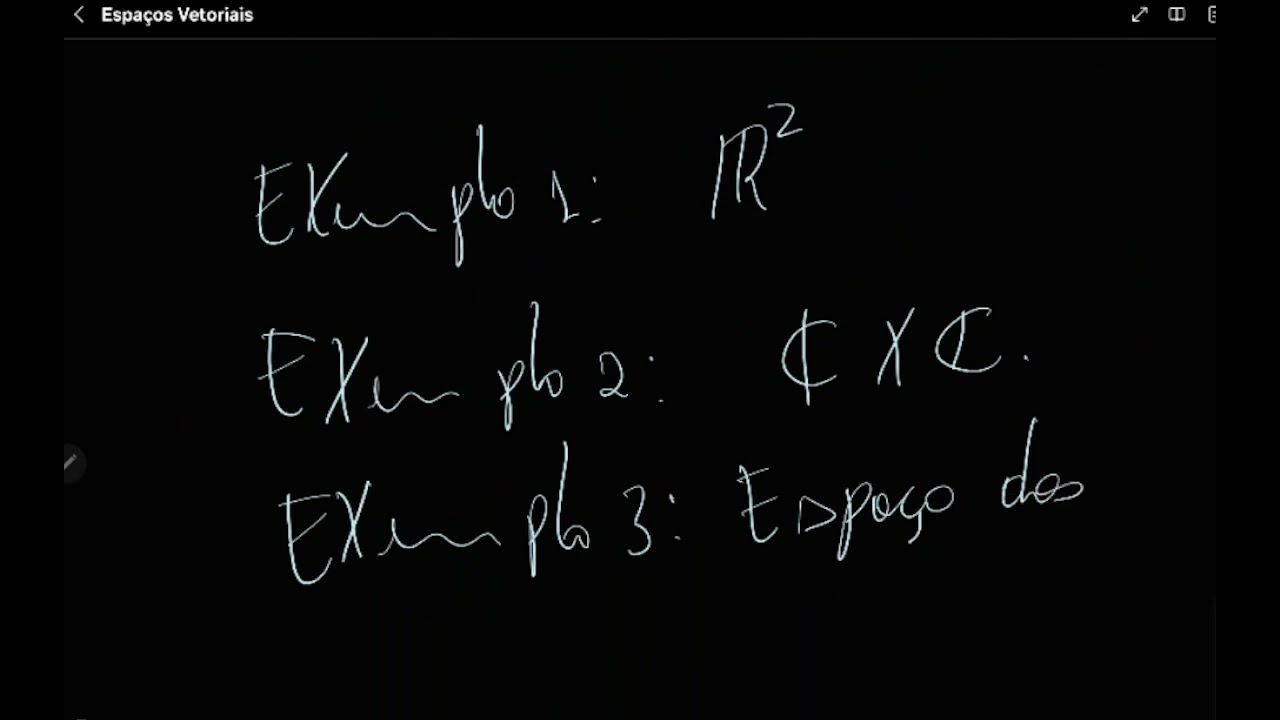 Espaços Vetoriais
Exemplo 1: ℝ²
Exemplo 2: ℂ X ℂ.
Exemplo 3: Espaço dos